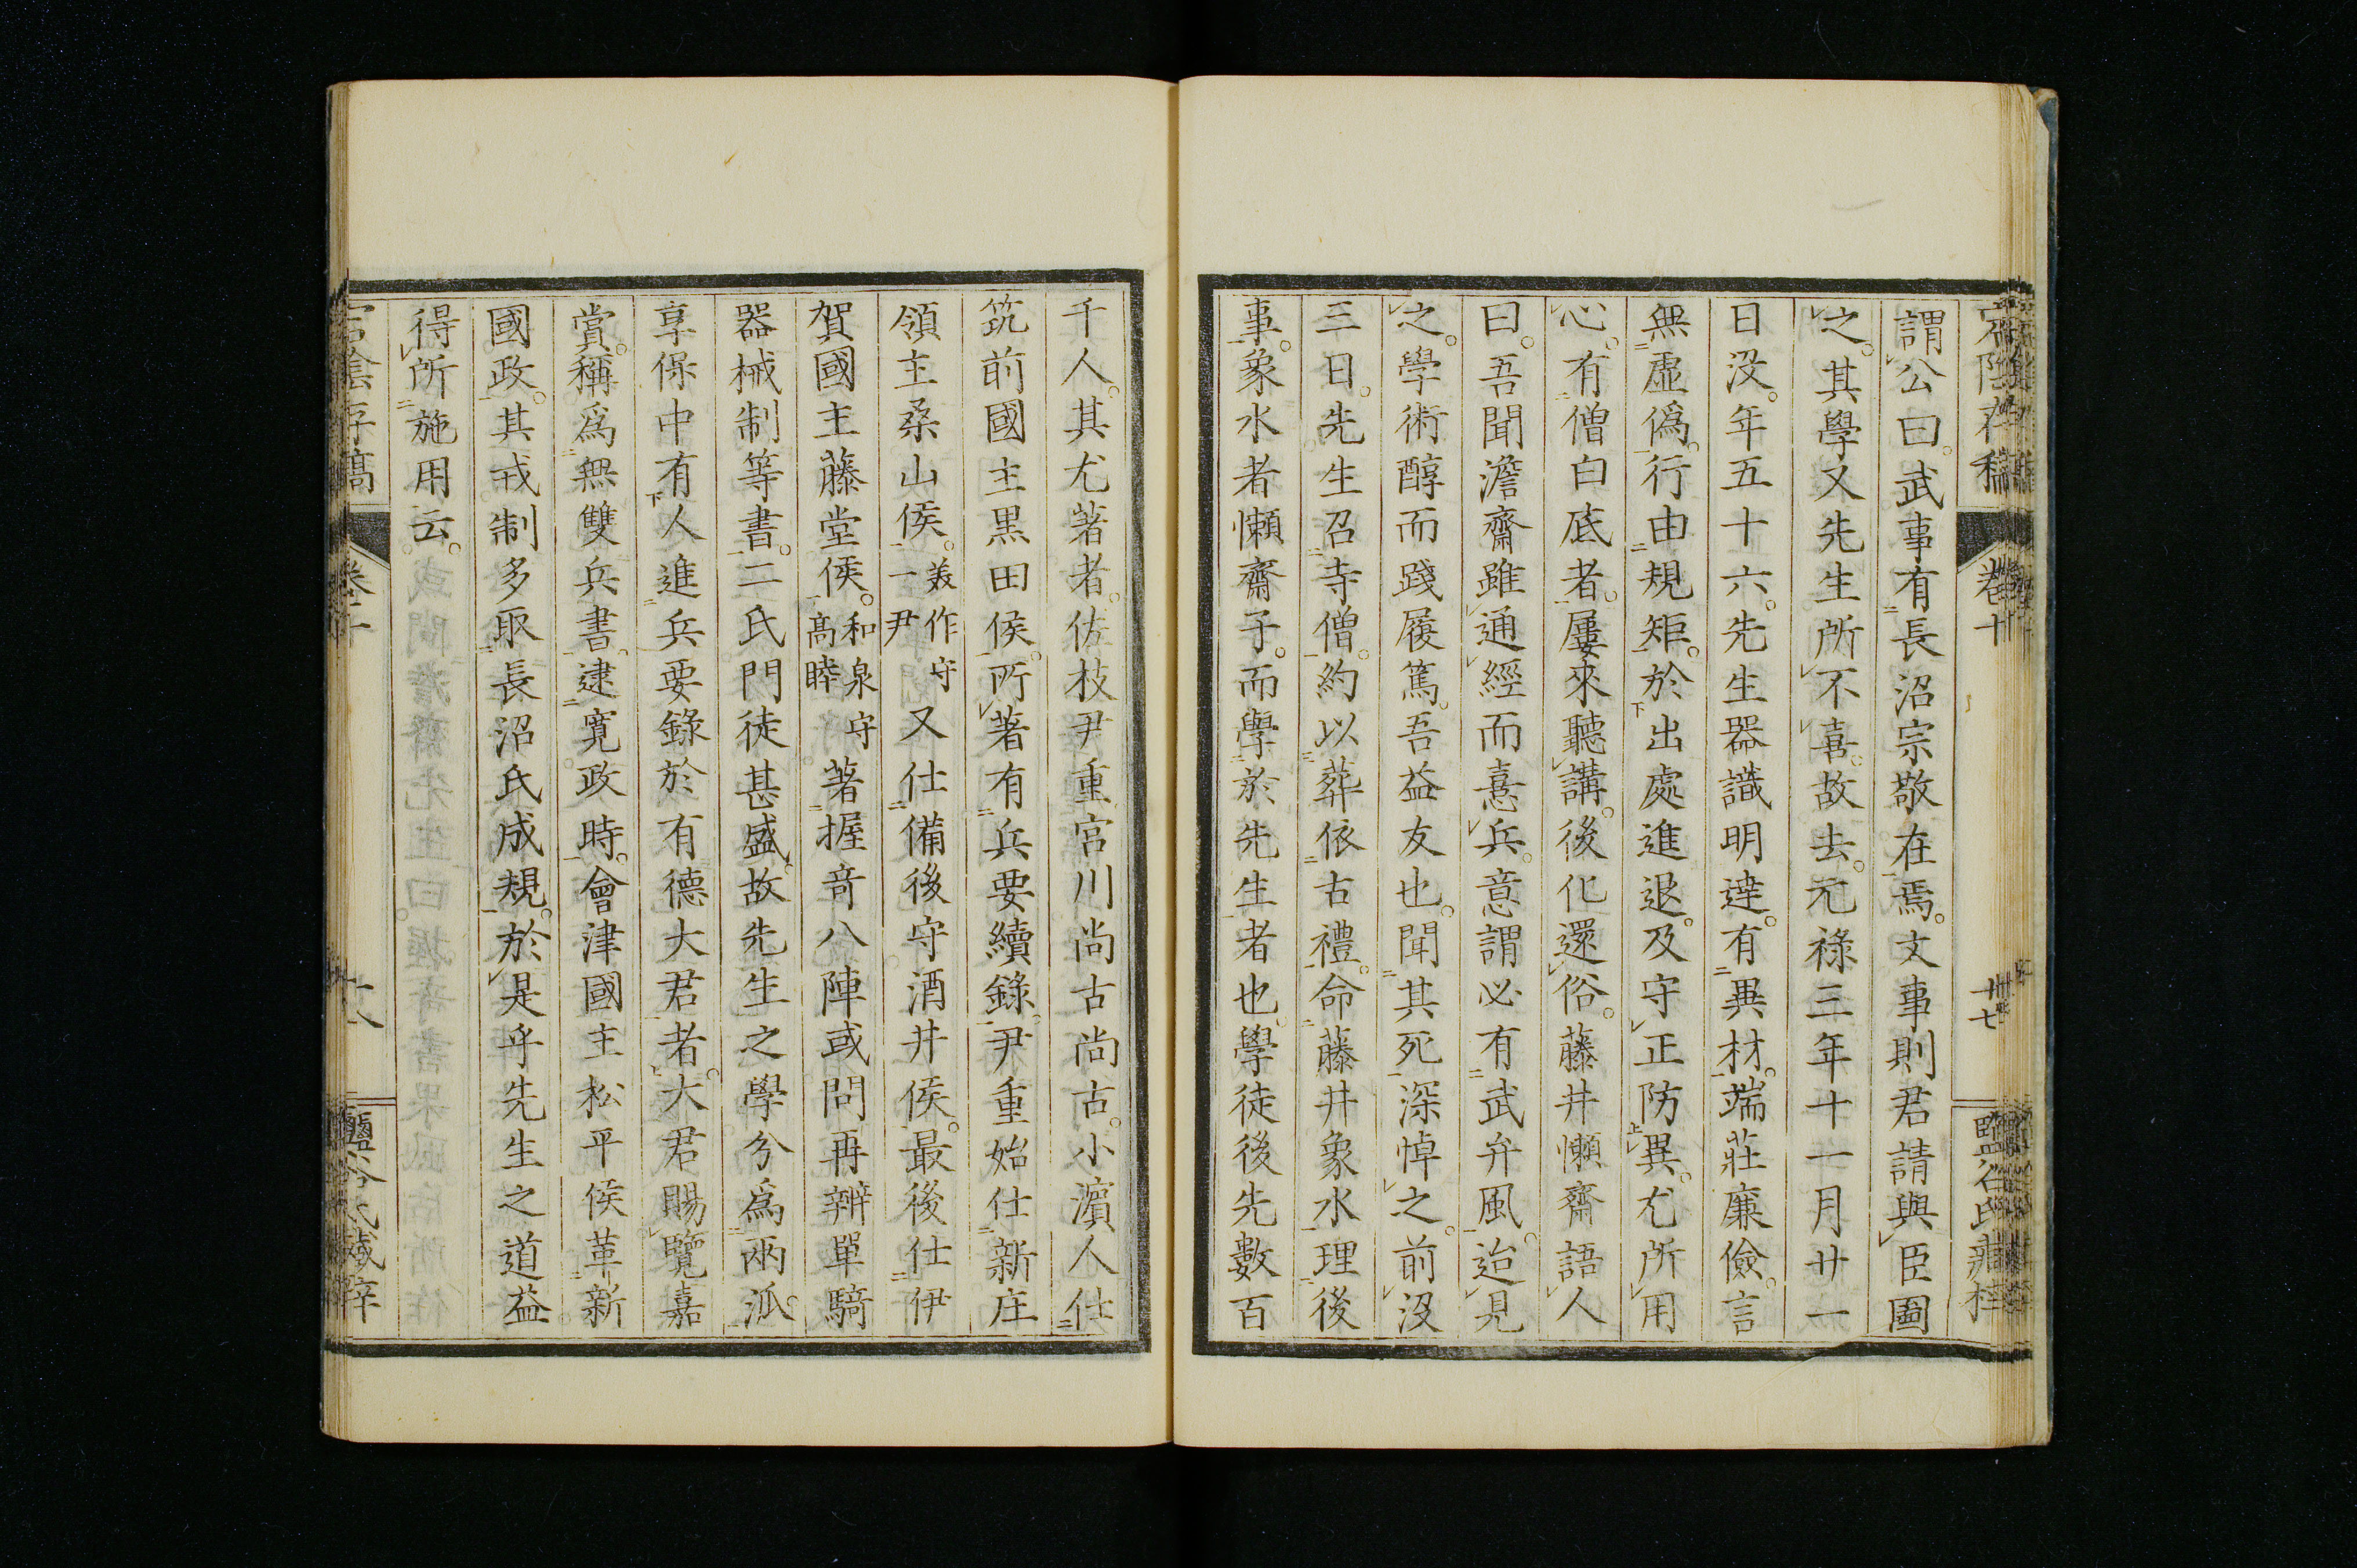 宕陰存稿 卷十 卅七 鹽谷氏藏梓
謂公曰。武事有長沼宗敬在焉。文事則君請與臣圖
之。其學又先生所不喜。故去。元祿三年十一月廿一
日沒。年五十六。先生器識明達。有異材。端莊廉儉。言
無虛僞。行由規矩。於出處進退。及守正防異。尤所用
心。有僧白底者。屢來聽講。後化還俗。藤井懶齋語人
曰。吾聞澹齋雖通經而憙兵。意謂必有武弁風。迨見
之。學術醇而踐履篤。吾益友也。聞其死深悼之。前沒
三日。先生召寺僧。約以葬依古禮。命藤井象水理後
事。象水者懶齋子。而學於先生者也。學徒後先數百
千人。其尤著者。佐枝尹重宮川尚古尚古。小濵人仕
筑前國主黑田侯。所著有兵要續錄。尹重始仕新庄
領主桑山侯。美作守一尹又仕備後守酒井侯。最後仕伊
賀國主藤堂侯。和泉守高睦著握奇八陣或問再辨單騎
器械制等書。二氏門徒甚盛。故先生之學分爲兩派。
享保中有人進兵要錄於有德大君者。大君賜覽嘉
賞。稱爲無雙兵書。逮寬政時。會津國主松平侯革新
國政。其戎制多取長沼氏成規。於是乎先生之道益
得所施用云。
宕陰存稿 卷十 鹽谷氏藏梓